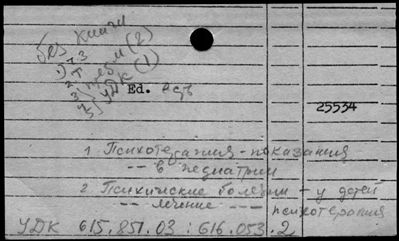 книги
(2)
(1)
Ed.
25534
1 Психотерапия - показания
-- в педиатрии
2 Психические болезни - у детей
-- лечение --- психотерапия
УДК 615.851.03 : 616.053.2